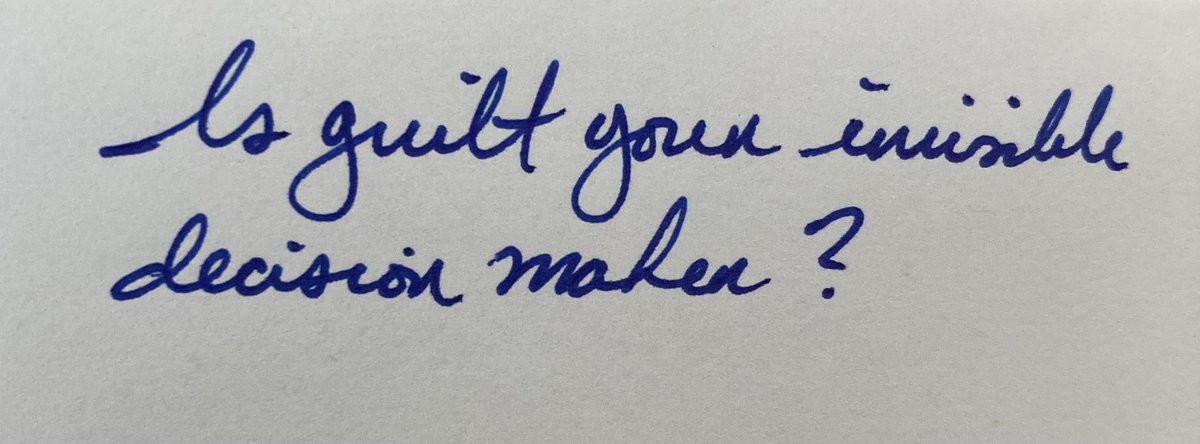 Is guilt your invisible
decision maker?